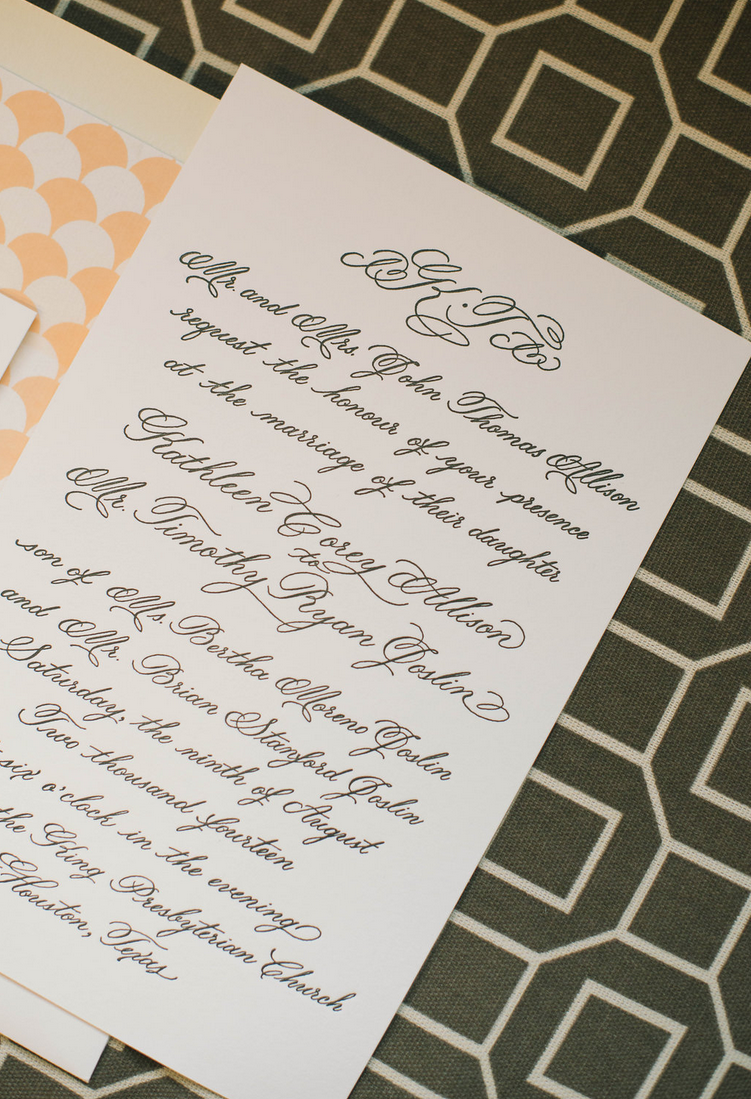 K·T
Mr. and Mrs. John Thomas Allison
request the honour of your presence
at the marriage of their daughter
Kathleen Corey Allison
to
Mr. Timothy Ryan Joslin
son of Ms. Bertha Moreno Joslin
and Mr. Brian Stanford Joslin
Saturday, the ninth of August
Two thousand fourteen
six o'clock in the evening
the King Presbyterian Church
Houston, Texas